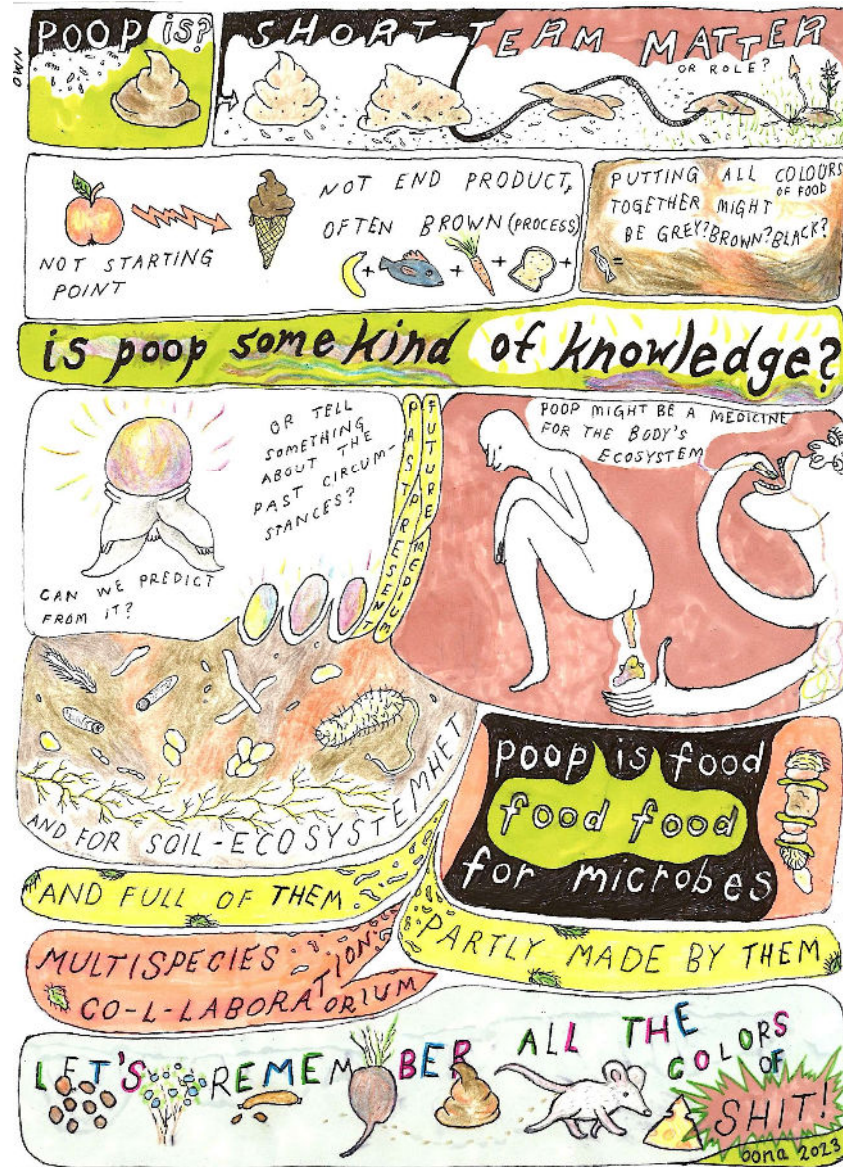 POOP is?
OMN
SHORT-TERM MATTER
OR ROLE?
NOT STARTING
POINT
NOT END PRODUCT,
OFTEN BROWN (PROCESS)
+ + + +
PUTTING ALL COLOURS
OF FOOD
TOGETHER MIGHT
BE GREY? BROWN? BLACK?
=
is poop some kind of knowledge?
OR TELL
SOMETHING
ABOUT THE
PAST CIRCUM-
STANCES?
CAN WE PREDICT
FROM IT?
PAST PRESENT
FUTURE MEDIUM
POOP MIGHT BE A MEDICINE
FOR THE BODY'S
ECOSYSTEM
AND FOR SOIL-ECOSYSTEMHET
poop is food
food food
for microbes
AND FULL OF THEM
PARTLY MADE BY THEM
MULTISPECIES
CO-L-LABORATION
ORIUM
LET'S REMEMBER ALL THE
COLORS
OF
SHIT!
bona 2023